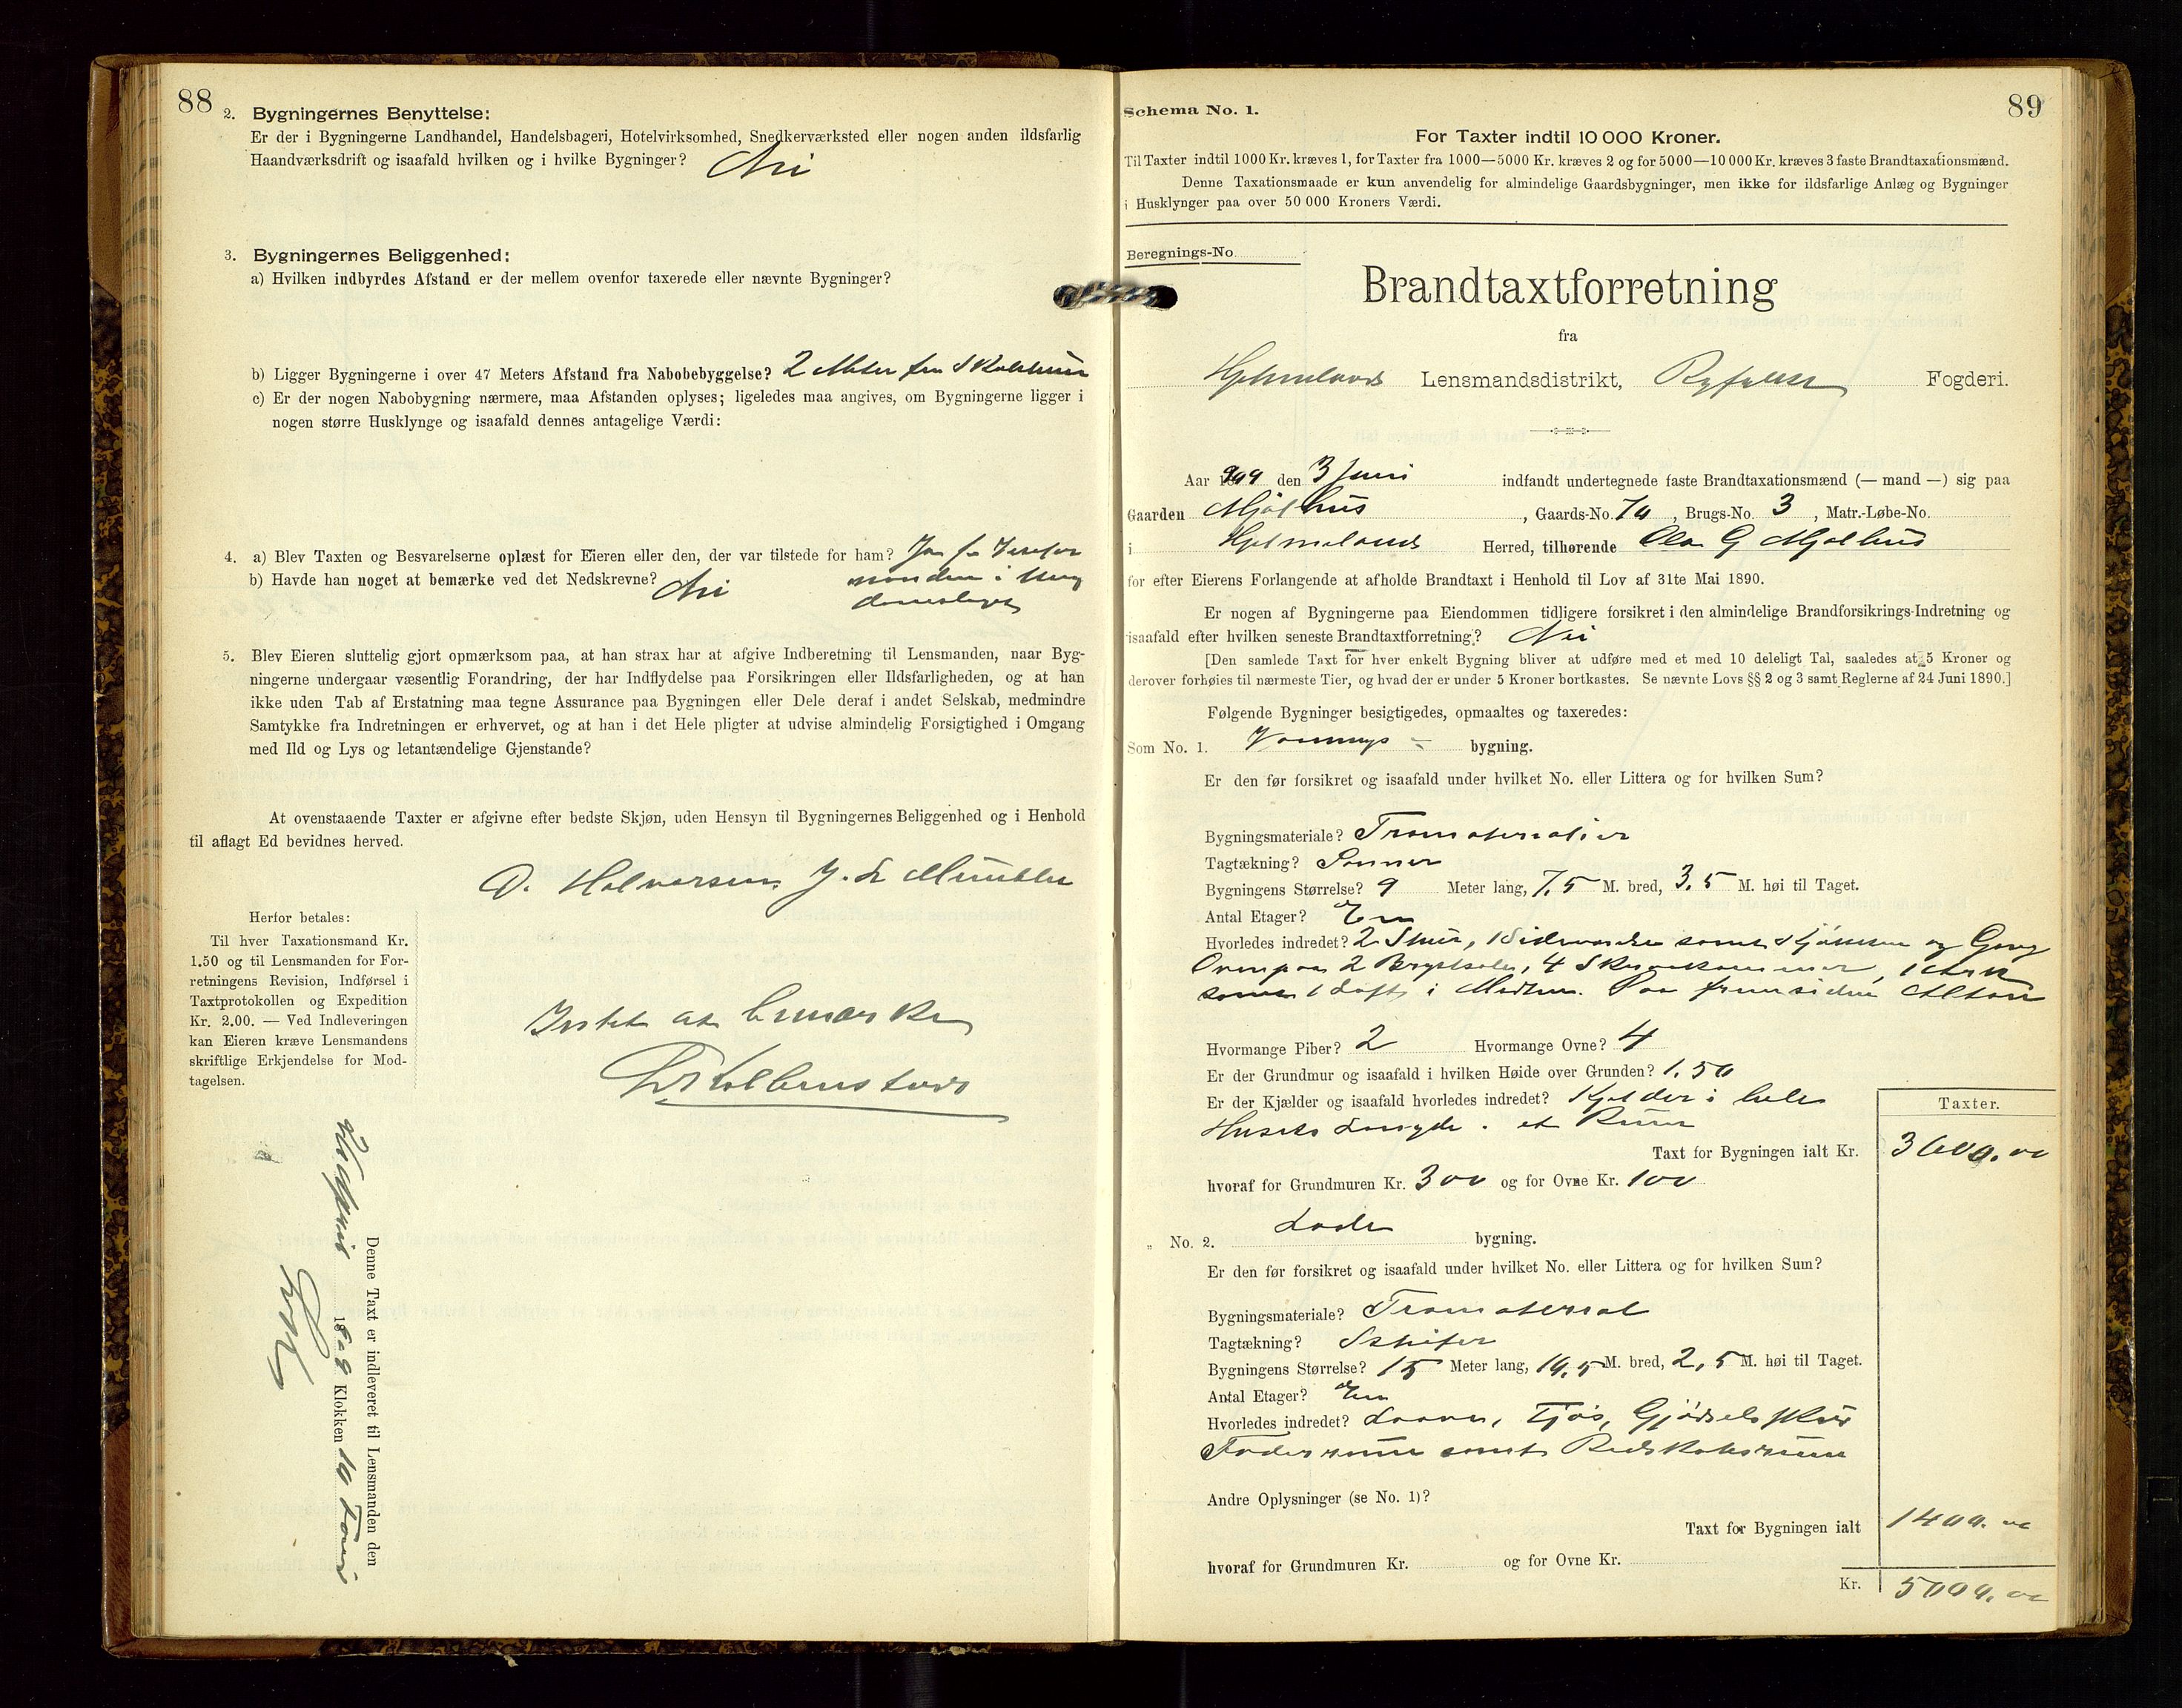 88
2. Bygningernes Benyttelse:
Er der i Bygningerne Landhandel, Handelsbageri, Hotelvirksomhed, Snedkerværksted eller nogen anden ildsfarlig
Haandværksdrift og isaafald hvilken og i hvilke Bygninger? Nei
3. Bygningernes Beliggenhed:
a) Hvilken indbyrdes Afstand er der mellem ovenfor taxerede eller nævnte Bygninger?
b) Ligger Bygningerne i over 47 Meters Afstand fra Nabobebyggelse? 2 Meter fra Skolehuus
c) Er der nogen Nabobygning nærmere, maa Afstanden oplyses; ligeledes maa angives, om Bygningerne ligger i
nogen større Husklynge og isaafald dennes antagelige Værdi:
4. a) Blev Taxten og Besvarelserne oplæst for Eieren eller den, der var tilstede for ham? Ja
b) Havde han noget at bemærke ved det Nedskrevne? Nei
5. Blev Eieren sluttelig gjort opmærksom paa, at han strax har at afgive Indberetning til Lensmanden, naar Byg-
ningerne undergaar væsentlig Forandring, der har Indflydelse paa Forsikringen eller Ildsfarligheden, og at han
ikke uden Tab af Erstatning maa tegne Assurance paa Bygningen eller Dele deraf i andet Selskab, medmindre
Samtykke fra Indretningen er erhvervet, og at han i det Hele pligter at udvise almindelig Forsigtighed i Omgang
med Ild og Lys og letantændelige Gjenstande?
At ovenstaaende Taxter er afgivne efter bedste Skjøn, uden Hensyn til Bygningernes Beliggenhed og i Henhold
til aflagt Ed bevidnes herved.
O. Halvorsen
Herfor betales:
Til hver Taxationsmand Kr.
1.50 og til Lensmanden for For-
retningens Revision, Indførsel i
Taxtprotokollen og Expedition
Kr. 2.00. — Ved Indleveringen
kan Eieren kræve Lensmandens
skriftlige Erkjendelse for Mod-
tagelsen.
Intet at bemærke
Denne Taxt er indleveret til Lensmanden den
Klokken 10
89
Schema No. 1.
For Taxter indtil 10 000 Kroner.
Til Taxter indtil 1000 Kr. kræves 1, for Taxter fra 1000—5000 Kr. kræves 2 og for 5000—10 000 Kr. kræves 3 faste Brandtaxationsmænd.
Denne Taxationsmaade er kun anvendelig for almindelige Gaardsbygninger, men ikke for ildsfarlige Anlæg og Bygninger
i Husklynger paa over 50 000 Kroners Værdi.
Beregnings-No.
Brandtaxtforretning
fra
Hjelmelands Lensmandsdistrikt, Ryfylke Fogderi.
Aar 1909 den 3 Juni indfandt undertegnede faste Brandtaxationsmænd (— mand —) sig paa
Gaarden Mjølhus, Gaards-No. 70, Brugs-No. 3, Matr.-Løbe-No.
i Hjelmelands Herred, tilhørende Ola G Mjølhus
for efter Eierens Forlangende at afholde Brandtaxt i Henhold til Lov af 31te Mai 1890.
Er nogen af Bygningerne paa Eiendommen tidligere forsikret i den almindelige Brandforsikrings-Indretning og
isaafald efter hvilken seneste Brandtaxtforretning? Nei
[Den samlede Taxt for hver enkelt Bygning bliver at udføre med et med 10 deleligt Tal, saaledes at 5 Kroner og
derover forhøies til nærmeste Tier, og hvad der er under 5 Kroner bortkastes. Se nævnte Lovs §§ 2 og 3 samt Reglerne af 24 Juni 1890.]
Følgende Bygninger besigtigedes, opmaaltes og taxeredes:
Som No. 1. Vaanings- bygning.
Er den før forsikret og isaafald under hvilket No. eller Littera og for hvilken Sum?
Bygningsmateriale? Træmaterialier
Tagtækning? Panner
Bygningens Størrelse? 9 Meter lang, 7,5 M. bred, 3,5 M. høi til Taget.
Antal Etager? En
Hvorledes indredet? 2 Stuer, 1 Sideværelse samt Kjøkken og Gang
Ovenpaa 2 4 1 Ark
samt 1 Loft i Midten. Paa fremsiden Altan
Hvormange Piber? 2 Hvormange Ovne? 4
Er der Grundmur og isaafald i hvilken Høide over Grunden? 1.50
Er der Kjælder og isaafald hvorledes indredet? Kjelder i hele
Husets Længde. et Rum
Taxter.
Taxt for Bygningen ialt Kr. 3600.00
hvoraf for Grundmuren Kr. 300 og for Ovne Kr. 100
" No. 2. Lade bygning.
Er den før forsikret og isaafald under hvilket No. eller Littera og for hvilken Sum?
Bygningsmateriale? Træmaterial
Tagtækning? Skifer
Bygningens Størrelse? 15 Meter lang, 10,5 M. bred, 2,5 M. høi til Taget.
Antal Etager? En
Hvorledes indredet? Laave, Fjøs, Gjødselskur
Foderrum samt Redskabsrum
Andre Oplysninger (se No. 1)?
Taxt for Bygningen ialt 1400.00
hvoraf for Grundmuren Kr. og for Ovne Kr.
Kr. 5000.00